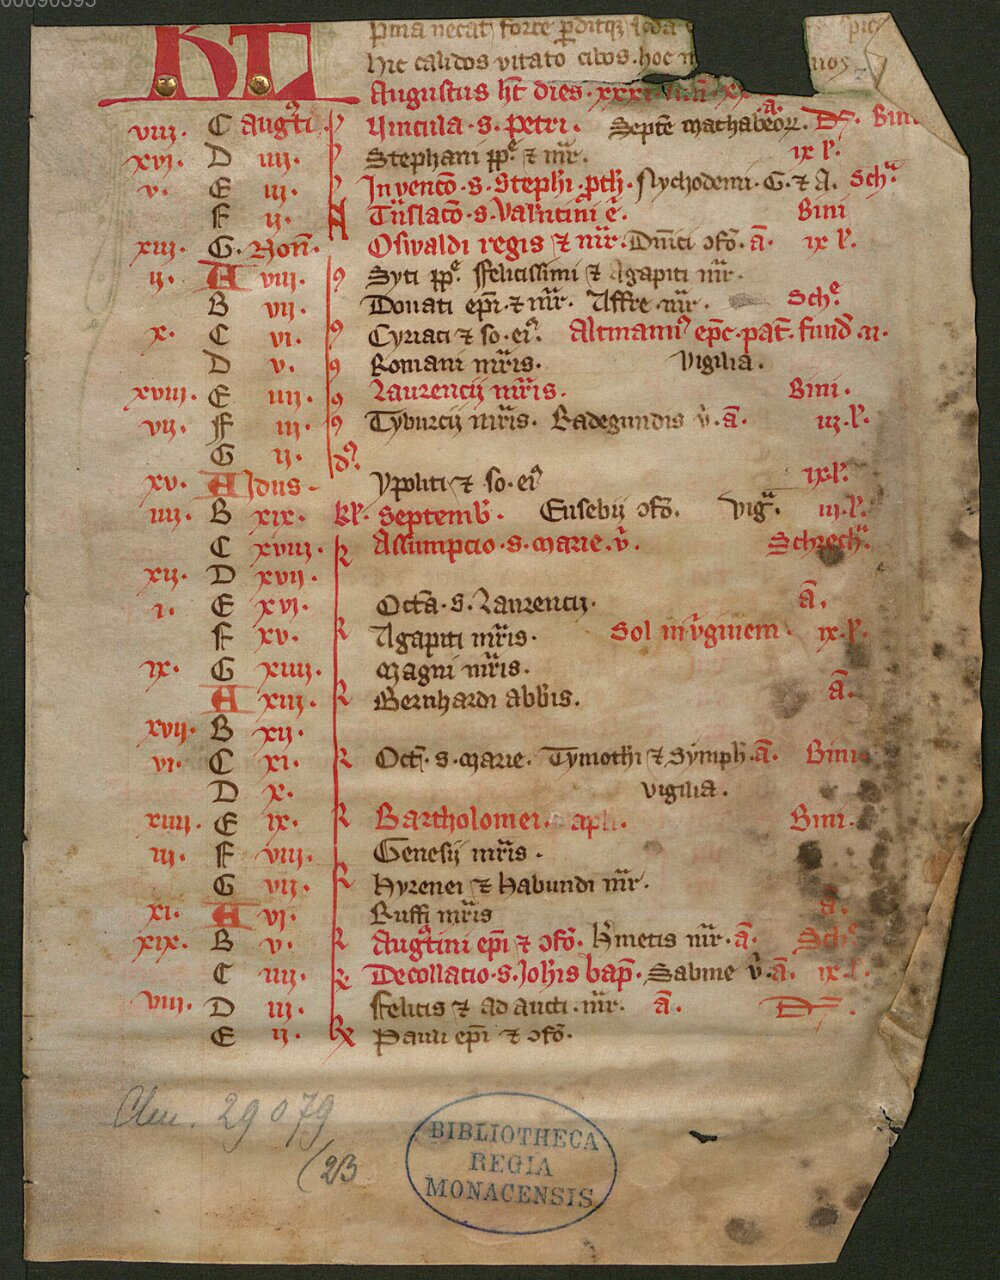 00090395
KL
Prima necat forte perditque
Hic calidos vitato cibos. hoc
Augustus ht dies. xxxi.
viii. C Augusti Vincula. s. petri. Septe machabeor. Bini
xvi. D iiii. Stephani pp. et mr. ix l.
v. E iii. Invenco. s. Steph. Nychodemi. G. et A. Sch.
F ii. Tnslaco. s. Valentini e. Bini
xiii. G. Non. Oswaldi regis et mr. Dnici ofs. a. ix l.
ii. A viii. Syti pp. ffelicissimi et Agapiti mr.
B vii. Donati epi. et mr. Affre. mr. Sch.
x. C vi. Cyriaci et so. ei. Altmanni epc. pat. fund. n.
D v. Romani mris. Vigilia.
xviii. E iiii. Laurencij mris. Bini.
vii. F iii. Tyburcij mris. Radegundis v. a. iii. l.
G ii.
xv. A Idus Ypoliti et so. ei ix l.
iiii. B xix. kl. Septemb. Eusebij ofs. Vig. iii. l.
C xviii. Assumpcio. s. marie. v. Schrech.
xii. D xvii.
i. E xvi. Octa. s. Laurencij. a.
F xv. Agapiti mris. Sol in virginem. ix. l.
ix. G xiiii. Magni mris.
A xiii. Bernhardi abbis. a.
xvii. B xii.
vi. C xi. Oct. s. marie. Tymothi et Symph. a. Bini
D x. vigilia.
xiiii. E ix. Bartholomei. apli. Bini.
iii. F viii. Genesij mris.
G vii. Hyrenei et Habundi mr.
xi. A vi. Ruffi mris a.
xix. B v. Augstini epi et ofs. Hmetis mr. a. Sch.
C iiii. Decollacio. s. Johis bap. Sabine v. a. ix. l.
viii. D iii. ffelicis et adaucti. mr. a.
E ii. Paulini epi et ofs.
Clm. 29079
(23
BIBLIOTHECA
REGIA
MONACENSIS